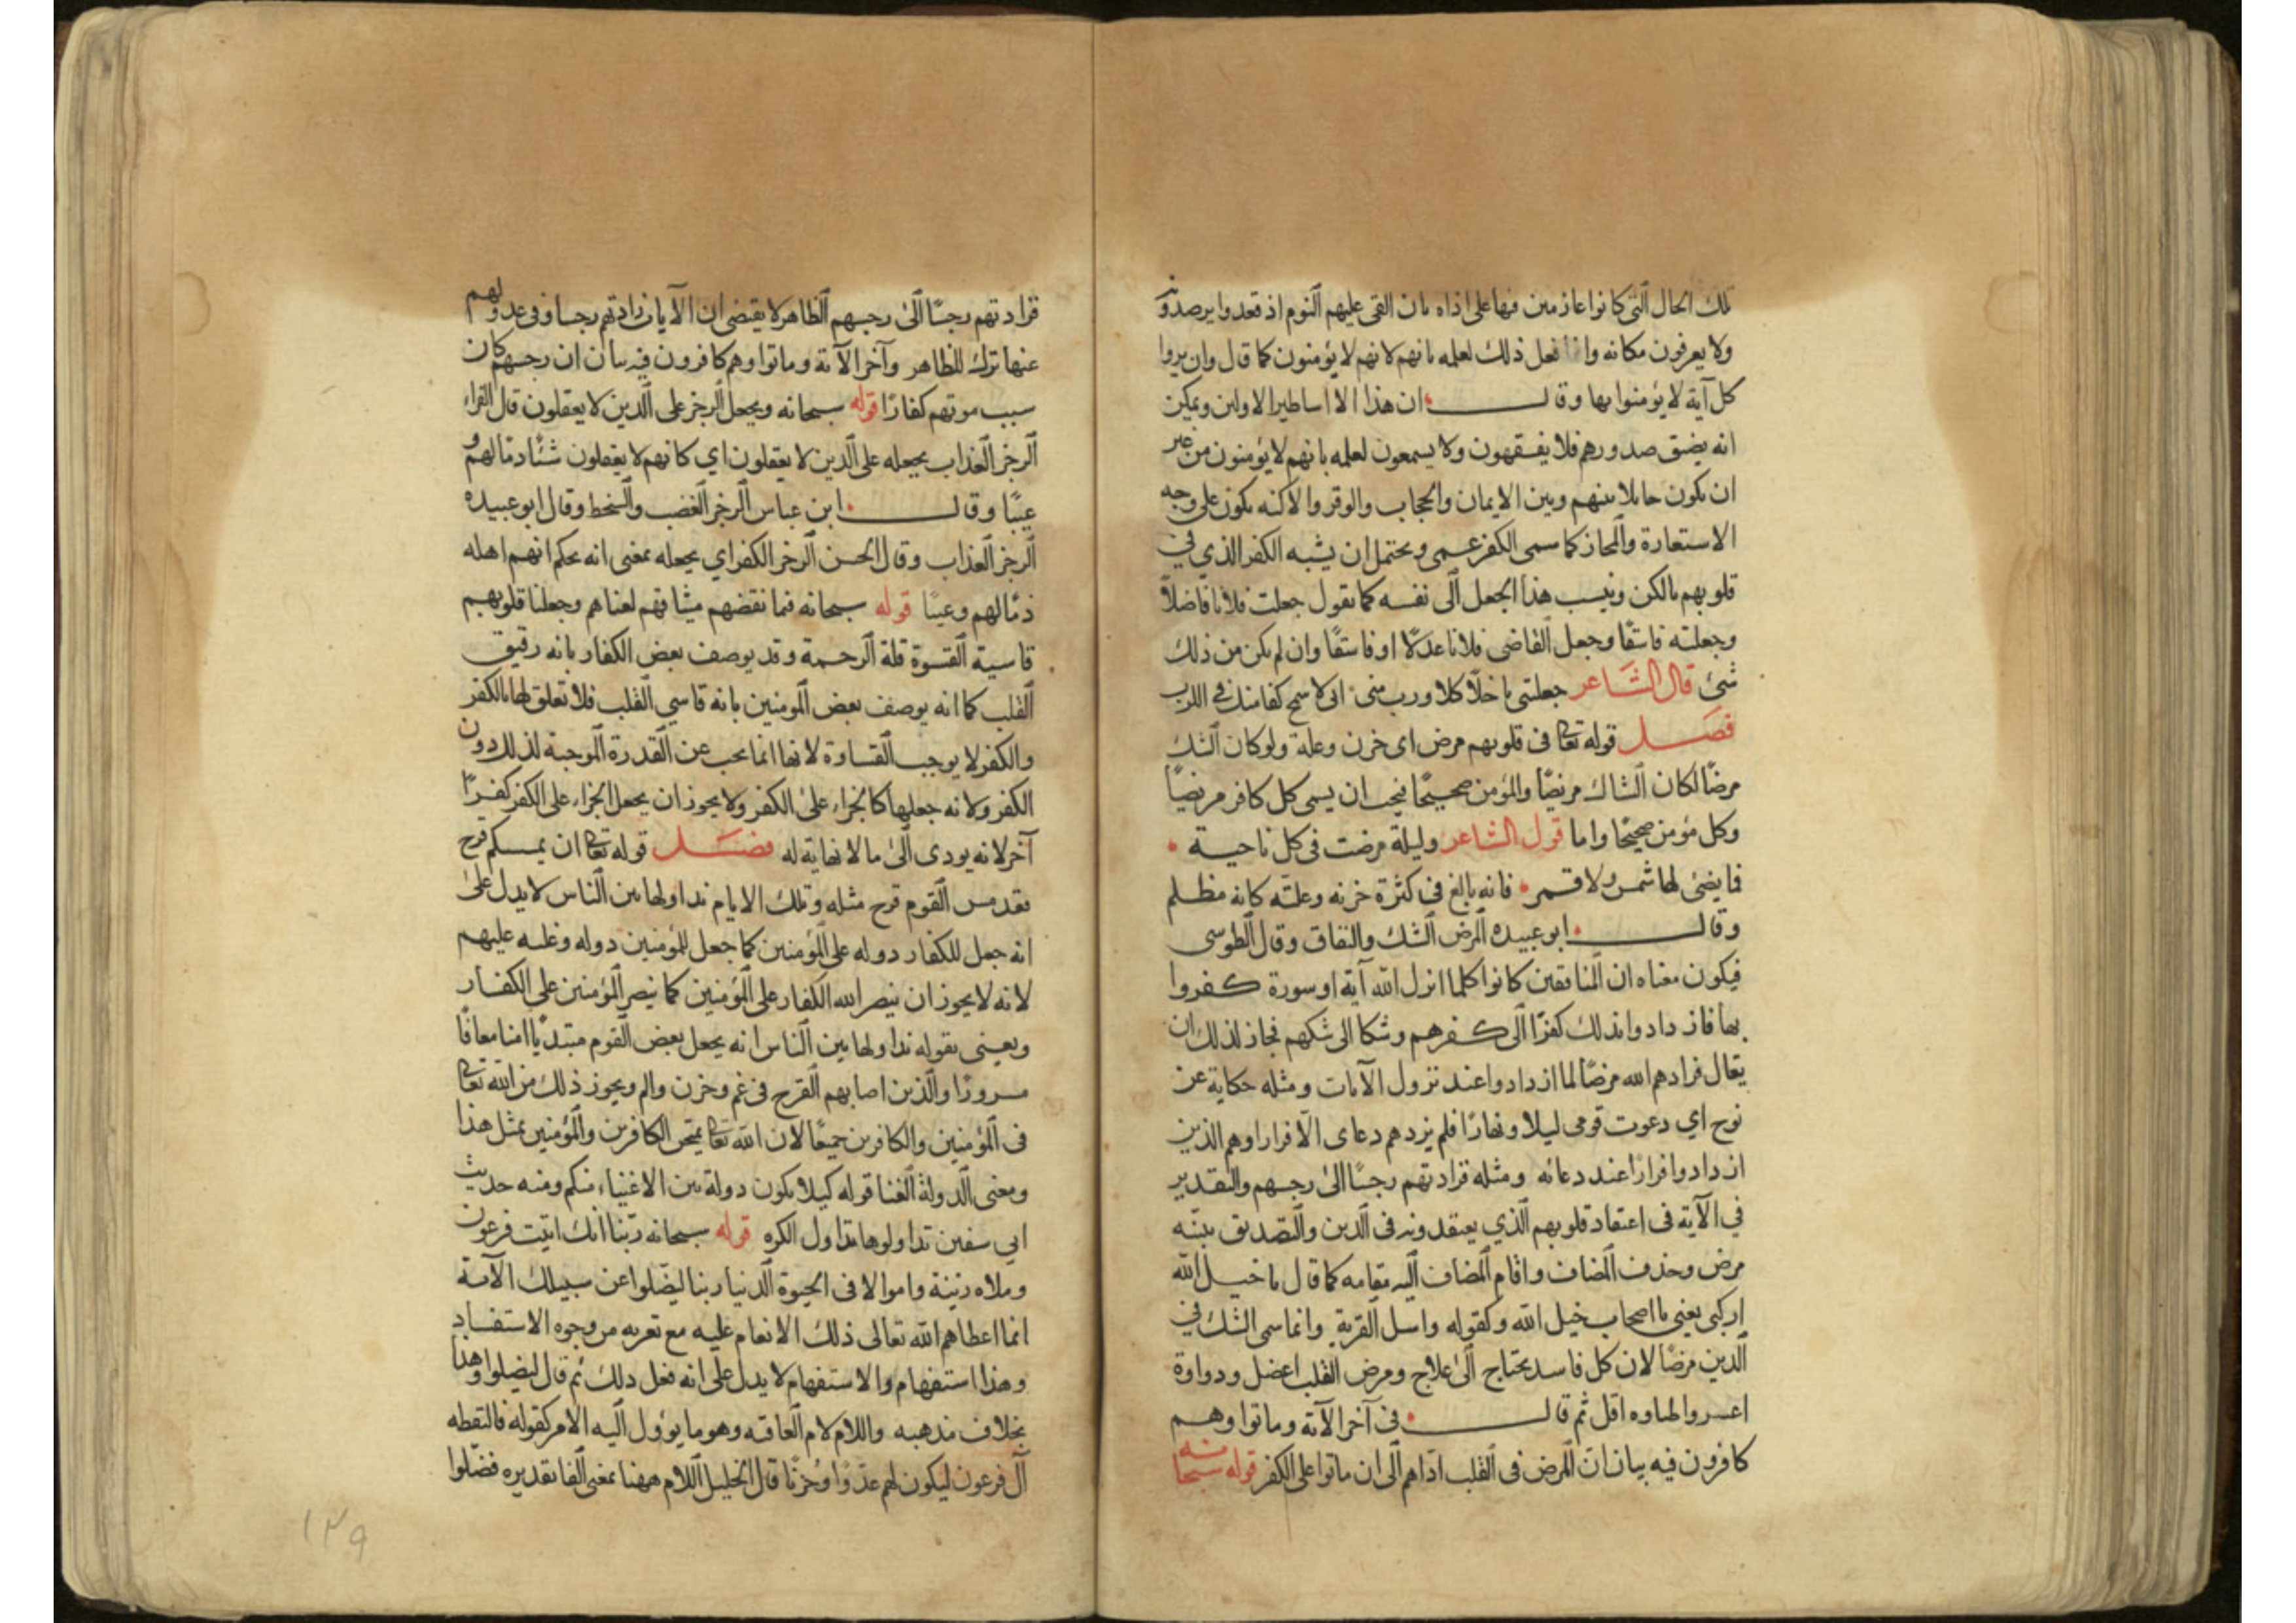 تلك الحال التى كانوا عازمين فيها على اذاه بان القى عليهم النوم اذ قعدوا يرصدونه
ولا يعرفون مكانه وانما فعل ذلك لعلمه بانهم لانهم لا يؤمنون كما قال وان يروا
كل آية لا يؤمنوا بها وقال ان هذا الا اساطير الاولين ويمكن
انه يضيق صدورهم فلا يفقهون ولا يسمعون لعلمه بانهم لا يؤمنون من غير
ان يكون حايلا بينهم وبين الايمان والحجاب والوقر والاكنه يكون على وجه
الاستعارة والمجاز كما سمى الكفر عمى ويحتمل ان يشبه الكفر الذي في
قلوبهم بالكن ونيسب هذا الجعل الى نفسه كما يقول جعلت فلانا فاضلاً
وجعلته فاسقًا وجعل القاضى فلانا عدلًا او فاسقًا وان لم يكن من ذلك
شئ قال الشاعر جعلتنى باخلًا كلا ورب منى انى لاسمح كفا منك في اللزب
فصل قوله تعالى فى قلوبهم مرض اى حزن وعلة ولو كان الشك
مرضًا لكان الشاك مريضًا والمؤمن صحيحًا فيجب ان يسمى كل كافر مريضًا
وكل مؤمن صحيحًا واما قول الشاعر وليلة مرضت فى كل ناحية
فما يضئ لها شمس ولا قمر فانه بالغ فى كثرة حزنه وعلته كانه مظلم
وقال ابو عبيده المرض الشك والنفاق وقال الطوسى
فيكون معناه ان المنافقين كانوا كلما انزل الله آية او سورة كفروا
بها فازدادوا بذلك كفرًا الى كفرهم وشكا الى شكهم فجاز لذلك ان
يقال فزادهم الله مرضًا لما ازدادوا عند نزول الآيات ومثله حكاية عن
نوح اي دعوت قومى ليلا ونهارًا فلم يزدهم دعاى الا فرارا وهم الذين
ازدادوا فرارًا عند دعائه ومثله فزادتهم رجسًا الى رجسهم والتقدير
في الآية فى اعتقاد قلوبهم الذي يعتقدونه فى الدين والتصديق بنبيّه
مرض وحذف المضاف واقام المضاف اليه مقامه كما قال يا خيل الله
اركبى يعنى يا اصحاب خيل الله وكقوله واسل القرية وانما سمى الشك في
الدين مرضًا لان كل فاسد يحتاج الى علاج ومرض القلب اعضل ودواوة
اعسر والهاوه اقل ثم قال فى آخر الآية وماتوا وهم
كافرون فيه بيان ان المرض فى القلب اداهم الى ان ماتوا على الكفر قوله سبحانه
فزادتهم رجسًا الى رجسهم الظاهر لا يقتضى ان الآيات زادتهم رجسا وفى عدولهم
عنها ترك للظاهر وآخر الآية وماتوا وهم كافرون فيه بيان ان رجسهم كان
سبب موتهم كفارًا قوله سبحانه ويجعل الرجز على الذين لا يعقلون قال الفراء
الرجز العذاب يجعله على الذين لا يعقلون اي كانهم لا يعقلون شئًا ذمّا لهم و
عيبًا وقال ابن عباس الرجز الغضب والسخط وقال ابو عبيده
الرجز العذاب وقال الحسن الرجز الكفر اي يجعله بمعنى انه يحكم انهم اهله
ذمّا لهم وعيبًا قوله سبحانه فبما نقضهم ميثاقهم لعناهم وجعلنا قلوبهم
قاسية القسوة قلة الرحمة وقد يوصف بعض الكفار بانه رقيق
القلب كما انه يوصف بعض المومنين بانه قاسي القلب فلا تعلق لها بالكفر
والكفر لا يوجب القساوة لانها انما يجب عن القدرة الموجبة لذلك دون
الكفر ولانه جعلها كالجزاء على الكفر ولا يجوز ان يجعل الجزاء على الكفر كفرًا
آخر لانه يودى الى ما لا نهاية له فصل قوله تعالى ان يمسكم قرح
فقد مس القوم قرح مثله وتلك الايام نداولها بين الناس لا يدل على
انه جعل للكفار دوله على المؤمنين كما جعل للمؤمنين دوله وغلبه عليهم
لانه لا يجوز ان ينصر الله الكفار على المؤمنين كما ينصر المؤمنين على الكفار
ويعنى بقوله نداولها بين الناس انه يجعل بعض القوم مبتديًا امنا معافًا
مسرورًا والذين اصابهم القرح فى غم وحزن والم ويجوز ذلك من الله تعالى
فى المؤمنين والكافرين جميعًا لان الله تعالى يمتحن الكافرين والمؤمنين بمثل هذا
ومعنى الدولة الغنا قوله كيلا يكون دولة بين الاغنياء منكم ومنه حديث
ابي سفين تداولوها تداول الكره قوله سبحانه ربنا انك اتيت فرعون
وملاه زينة واموالا فى الحيوة الدنيا ربنا ليضلوا عن سبيلك الآية
انما اعطاهم الله تعالى ذلك الانعام عليه مع تعريه من وجوه الاستفساد
وهذا استفهام والاستفهام لا يدل على انه فعل ذلك ثم قال ليضلوا وهذا
بخلاف مذهبه واللام لام العاقبه وهو ما يؤول اليه الامر كقوله فالتقطه
آل فرعون ليكون لهم عدوًا وحزنًا قال الخليل اللام ههنا بمعنى الفا تقديره فضلوا
١٣٩